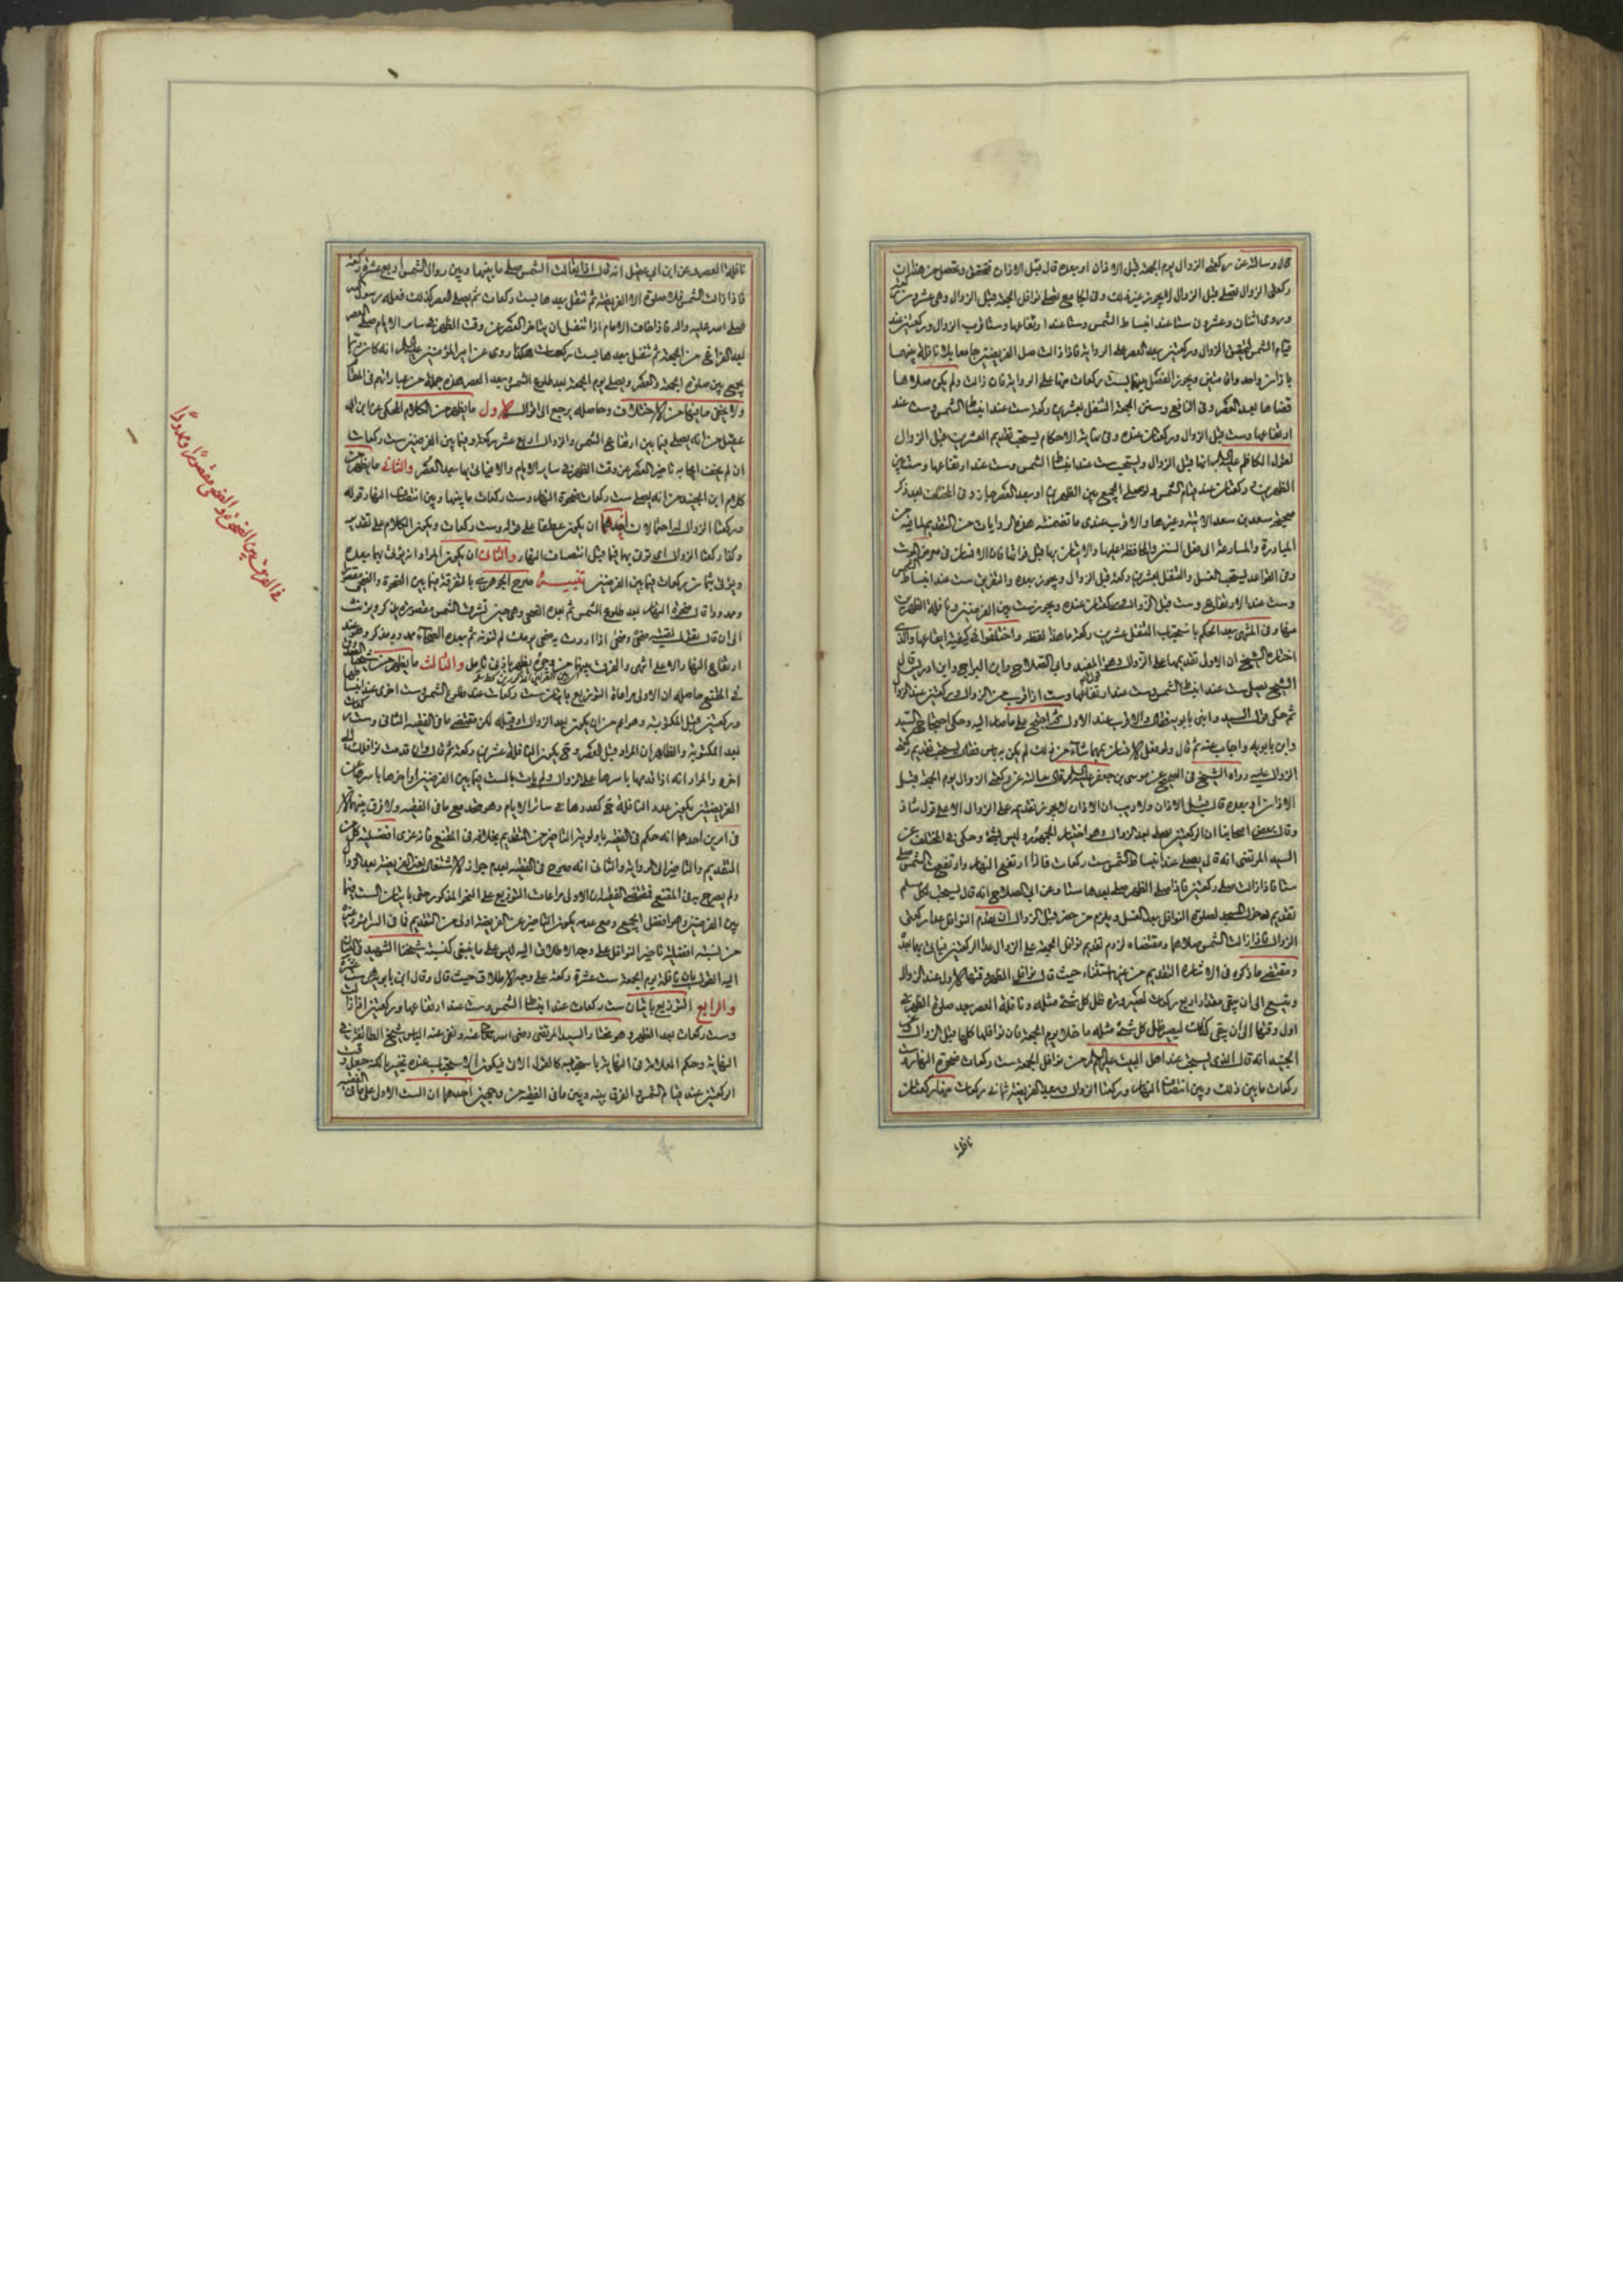 قال وسالته عن ركعتي الزوال يوم الجمعة قبل الاذان او بعده قال قبل الاذان
ركعتي الزوال تصلى قبل الزوال لا يجوز غير ذلك وفي الجامع تصلى نوافل الجمعة قبل الزوال وهي عشرون ركعة
وروى اثنتان وعشرون ستا عند انبساط الشمس وستا عند ارتفاعها وستا قرب الزوال وركعتين عند
قيام الشمس لتحقق الزوال وركعتين بعد العصر على الرواية فاذا زالت صلى الفريضتين جامعا بلا نافلة بينهما
باذان واحد واقامتين ويجوز الفصل بينهما بست ركعات منها على الرواية فان زالت ولم يكن صلاها
قضاها بعد العصر وفي النافع وسنن الجمعة التنفل بعشرين ركعة ست عند انبساط الشمس وست عند
ارتفاعها وست قبل الزوال وركعتان عنده وفي نهاية الاحكام يستحب تقديم العشرين قبل الزوال
الظهرين وركعتان عند قيام الشمس ولو صلى الجميع بين الظهرين او بعد العصر جاز وفي المختلف بعد ذكر
صحيحة سعد بن سعد الاتية وغيرها والاقرب عندي ما تضمنته هذه الروايات من التقديم لما فيه من
المبادرة والمسارعة الى فعل السنن والمحافظة عليها والاتيان بها قبل فواتها فان الانسان في معرض الموت
وفي القواعد يستحب الغسل والتنفل بعشرين ركعة قبل الزوال ويجوز بعده والتفريق ست عند انبساط الشمس
وست عند الارتفاع وست قبل الزوال وركعتان عنده ويجوز ست بين الفرضين ونافلة الظهرين
منها وفي المنتهى بعد الحكم باستحباب التنفل عشرين ركعة ما هذا لفظه واختلفوا في كيفية ايقاعها والذي
اختاره الشيخ ان الاولى تقديمها على الزوال وهو قول المفيد وابي الصلاح وابن البراج وابن ادريس قال
الشيخ يصلي ست عند انبساط الشمس وست عند ارتفاعها وست اذا قرب من الزوال وركعتين عند الزوال
وابن بابويه واجاب عنه ثم قال ولو فعل الانسان بهما شاء من ذلك لم يكن به باس
الزوال عليه رواه الشيخ في الصحيح عن موسى بن جعفر عليه السلام قال سالته عن ركعتي الزوال يوم الجمعة قبل
الاذان او بعده قال قبل الاذان ولا ريب ان الاذان لا يجوز تقديمه على الزوال الا على قول شاذ
السيد المرتضى انه قال يصلي عند انبساط الشمس ست ركعات فاذا ارتفع النهار وارتفعت الشمس صلى
ستا فاذا زالت صلى ركعتين فاذا صلى الظهر صلى بعدها ستا وعن ابي الصلاح انه قال يستحب لكل مسلم
تقديم دخول المسجد لصلوة النوافل بعد الغسل ويلزم من حضر قبل الزوال ان يقدم النوافل عدا ركعتي
الزوال فاذا زالت الشمس صلاهما ومقتضاه لزوم تقديم نوافل الجمعة على الزوال عدا الركعتين
الجنيد انه قال الذي يستحب عند اهل البيت عليهم السلام من نوافل الجمعة ست ركعات ضحوة النهار وست
ركعات ما بين ذلك وبين انتصاف النهار وركعتا الزوال وبعد الفريضة ثماني ركعات منها ركعتان
نافلة
نافلة العصر وعن ابن ابي عقيل انه قال اذا تعالت الشمس صلى ما بينها وبين زوال الشمس اربع عشرة ركعة
فاذا زالت الشمس فلا صلوة الا الفريضة ثم تنفل بعدها بست ركعات ثم يصلي العصر كذلك فعله رسول الله
صلى الله عليه واله فاذا خاف الامام اذا تنفل ان يتاخر العصر عن وقت الظهر في ساير الايام صلى العصر
بعد الفراغ من الجمعة ثم تنفل بعدها بست ركعات هكذا روى عن امير المؤمنين عليه السلام انه كان ربما
يجمع بين صلوة الجمعة والعصر ويصلي يوم الجمعة بعد طلوع الشمس وبعد العصر هذه جملة من عباراتهم
ولا يخفى ما بينها من الاختلاف وحاصله يرجع الى اقوال الاول ما يظهر من الكلام المحكي عن ابن ابي
عقيل من انه يصلي فيما بين ارتفاع الشمس والزوال اربع عشر ركعة وفيما بين الفرضين ست ركعات
ان لم يخف الجابة تاخير العصر عن وقت الظهر في ساير الايام والا فياتي بها بعد العصر والثاني ما يظهر من
كلام ابن الجنيد من انه يصلي ست ركعات ضحوة النهار وست ركعات ما بينها وبين انتصاف النهار وقوله
وركعتا الزوال له احتمالان احدهما ان يكون عطفا على قوله وست ركعات ويكون الكلام على تقدير
وكذا ركعتا الزوال اي يؤتى بها فيما قبل انتصاف النهار والثاني ان يكون المراد انه يؤتى بهما بعده
ويؤتى بثمان ركعات فيما بين الفرضين تنبيه صرح الجوهري بالتفرقة فيما بين الضحوة والضحى مقصورا
وممدودا قال ضحوة النهار بعد طلوع الشمس ثم بعده الضحى وهي حين تشرق الشمس مقصورة تذكر وتؤنث
ارتفاع النهار الاعلى انتهى والفرق بينهما من وجوه يظهر بادنى تامل والثالث ما يظهر من
في المقنع حاصله ان الاولى مراعاة التوزيع باتيان ست ركعات عند طلوع الشمس وست اخرى عند انبساطها
وركعتين قبل المكتوبة وهو اعم من ان يكون بعد الزوال او قبله لكن مقتضى ما في الفقيه الثاني وست ركعات
بعد المكتوبة والظاهر ان المراد قبل العصر وح يكون النافلة عشرين ركعة ثم قال وان قدمت نوافلك الى
اخره والمراد انه اذا قدمها باسرها على الزوال ولم يات بالست فيما بين الفرضين او اخرها باسرها عن
الفريضتين يكون عدد النافلة ح كعددها في سائر الايام وهو متحد مع ما في الفقيه والفرق بينهما
في امرين احدهما انه حكم في الفقيه باولوية التاخير من التقديم بخلافه في المقنع
التقديم والتاخير الى الرواية والثاني انه صرح في الفقيه بعدم جواز الاشتغال بغير الفريضة بعد الزوال
ولم يصرح به في المقنع فمقتضى الفقيه ان الاولى مراعات التوزيع على النحو المذكور حتى باتيان الست فيما
بين الفرضين وهو افضل الجميع ومع عدمه يكون التاخير عن الفريضة اولى من التقديم فما في السرائر وغيره
من نسبة افضلية تاخير النوافل على وجه الاطلاق اليه ليس على ما ينبغي كنسبة شيخنا الشهيد في البيان
اليه القول بان نافلة يوم الجمعة ست عشرة ركعة على وجه الاطلاق حيث قال وقال ابن بابويه ست عشرة
والرابع التوزيع باتيان ست ركعات عند انبساط الشمس وست عند ارتفاعها وركعتين اذا زالت
وست ركعات بعد الظهر وهو مختار السيد المرتضى رضي الله تعالى عنه ونفى عنه الباس شيخ الطائفة في
النهاية وحكم العلامة في النهاية باستحبابه كالقول الاتي فيكون الاستحباب عنده تخييريا لكنه جعل وقت
الركعتين عند قيام الشمس والفرق بينه وبين ما في الفقيه من وجهين احدهما ان الست الاولى على ما في الفقيه
في الفرق بين الضحوة والضحى مقصورا وممدودا